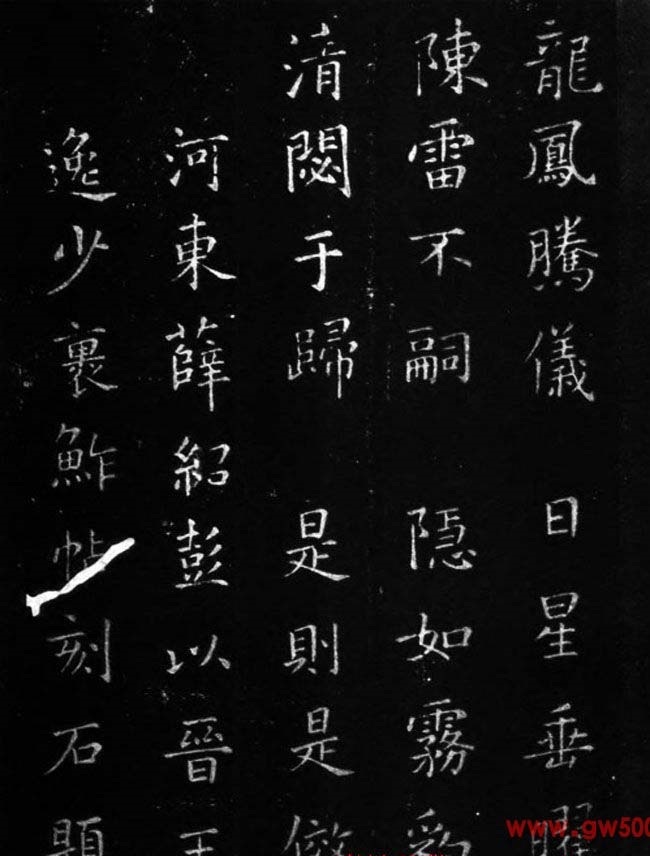 龍鳳騰儀 日星垂曜
陳雷不嗣 隱如霧豹
清閟于歸 是則是傚
河東薛紹彭以晉王
逸少裹鮓帖刻石題
www.gw500